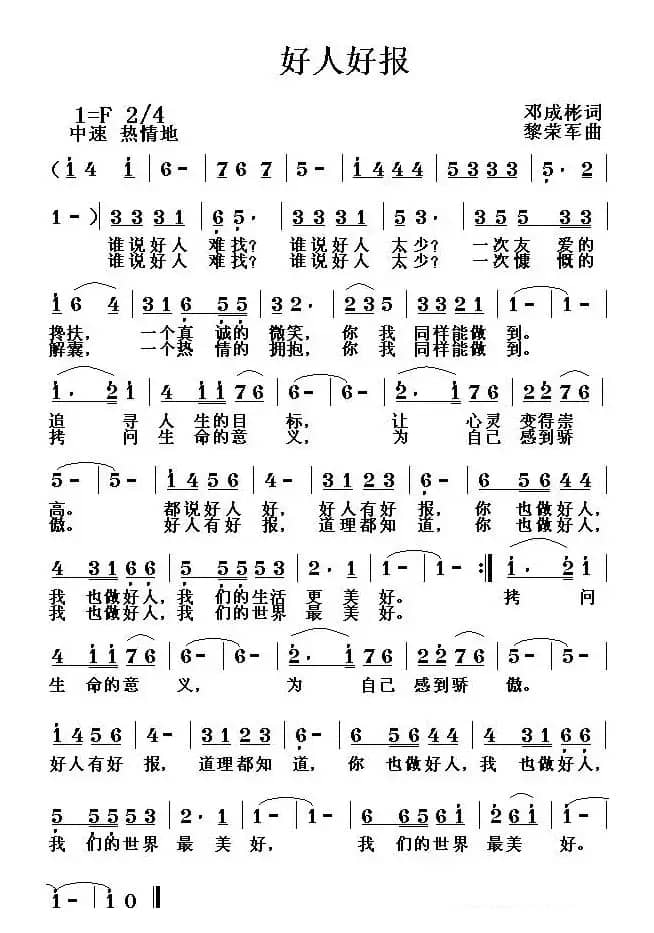 好人好报
1=F 2/4
邓成彬词
中速 热情地
黎荣军曲
( i 4 i | 6 - | 7 6 7 | 5 - | i 4 4 4 | 5 3 3 3 | 5 . 2 |
1 - ) | 3 3 3 1 | 6 5 . | 3 3 3 1 | 5 3 . | 3 5 5 3 3 |
谁说好人 难找? 谁说好人 太少? 一次友 爱的
谁说好人 难找? 谁说好人 太少? 一次慷 慨的
i 6 4 | 3 1 6 5 5 | 3 2 . | 2 3 5 | 3 3 2 1 | 1 - |
搀扶, 一个真 诚的 微笑, 你 我 同样能做 到。
解囊, 一个热 情的 拥抱, 你 我 同样能做 到。
i . 2 i | 4 i i 7 6 | 6 - | 6 - | 2 . i 7 6 | 2 2 7 6 |
追 寻 人 生的目 标, 让 心灵 变得崇
拷 问 生 命的意 义, 为 自己 感到骄
5 - | 5 - | i 4 5 6 | 4 - | 3 1 2 3 | 6 - | 6 5 6 4 4 |
高。 都说好人 好, 好人有好 报, 你 也做好人,
傲。 好人有好 报, 道理都知 道, 你 也做好人,
4 3 1 6 6 | 5 5 5 5 3 | 2 . 1 | 1 - | 1 - :| i . 2 i |
我 也做好人,我 们的生活 更 美好。 拷 问
我 也做好人,我 们的世界 最 美好。
4 i i 7 6 | 6 - | 6 - | 2 . i 7 6 | 2 2 7 6 | 5 - | 5 - |
生 命的意 义, 为 自己 感到骄 傲。
i 4 5 6 | 4 - | 3 1 2 3 | 6 - | 6 5 6 4 4 | 4 3 1 6 6 |
好人有好 报, 道理都知 道, 你 也做好人,我 也做好人,
5 5 5 5 3 | 2 . 1 | 1 - | 1 - | 6 6 5 6 i | 2 6 i | i - |
我 们的世界 最 美 好, 我 们的世界 最美 好。
i - | i 0 ‖